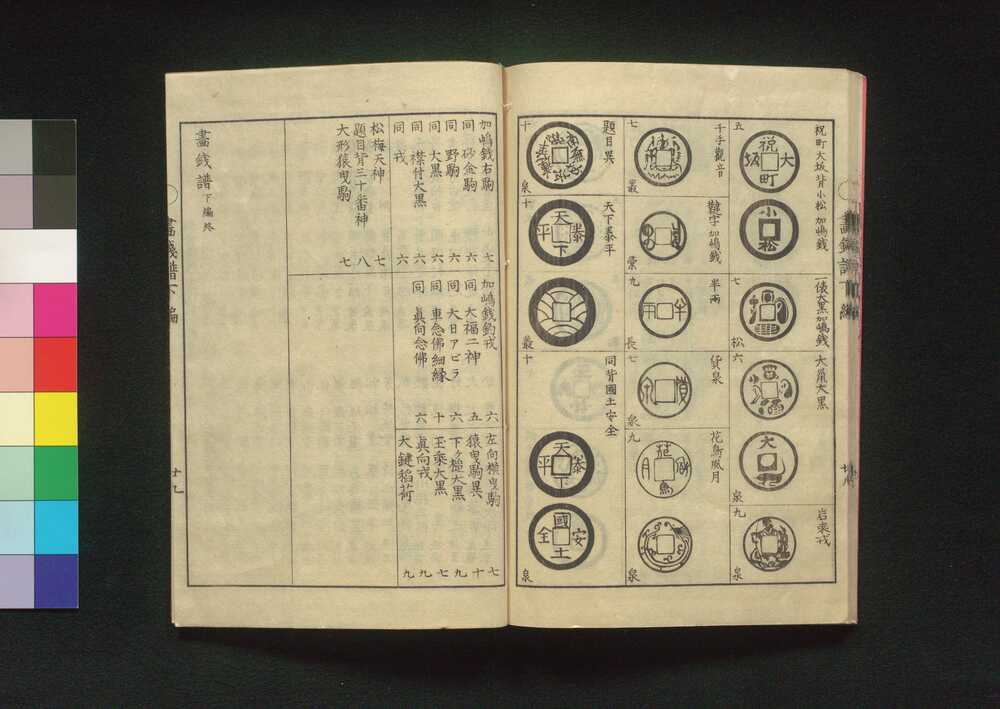 祝町大坂背小松 加嶋銭
五
祝町大坂
小松
一俵大黒加嶋銭
七
松
大黒
六
大
泉
岩乗戎
九
泉
千手觀音
七
叢
加嶋銭
棠
半兩
九
半兩
長
貨泉
七
貨泉
泉
花鳥風月
九
花鳥風月
泉
題目異
十
泉
天下泰平
十
天下泰平
叢
同背國土安全
十
天下泰平
國土安全
泉
加嶋銭右駒 七
同 砂金駒 六
同 野駒 六
同 大黒 六
同 襟付大黒 六
同 戎 六
松梅天神 七
題目背三十番神 八
大形猿曳駒 七
加嶋銭釣戎 六
同 大福二神 五
同 大日アビラ 六
同 車念佛細縁 十
同 眞向念佛 六
左向横曳駒 七
猿曳駒異 十
下ケ槌大黒 九
玉乘大黒 七
眞向戎 九
大鍵稻荷 九
畫銭譜下編終
畫銭譜下編
十九